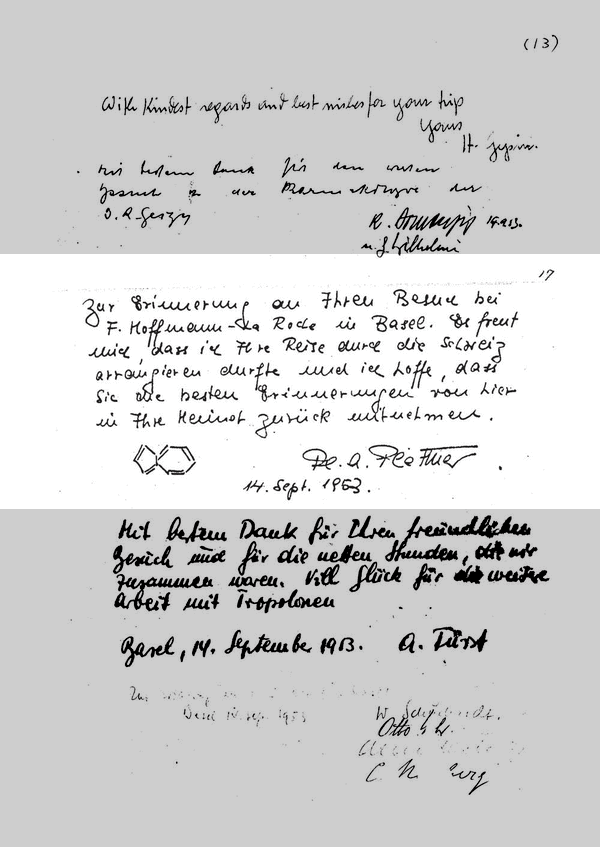 (13)
With kindest regards and best wishes for your trip
Yours
H. Gysin.
Mit bestem Dank für den
Besuch in der
J. R. Geigy
R. 14.9.53.
u. J. Wilhelmi
17
Zur Erinnerung an Ihren Besuch bei
F. Hoffmann-La Roche in Basel. Es freut
mich, dass ich Ihre Reise durch die Schweiz
arrangieren durfte und ich hoffe, dass
Sie die besten Erinnerungen von hier
in Ihre Heimat zurück mitnehmen.
Pl. A. Plattner
14. Sept. 1953.
Mit bestem Dank für Ihren freundlichen
Besuch und für die netten Stunden, die wir
zusammen waren. Viel Glück für die weitere
Arbeit mit Tropolonen
Basel, 14. September 1953. A. Fürst
Basel 14. Sep. 1953
W.
Otto